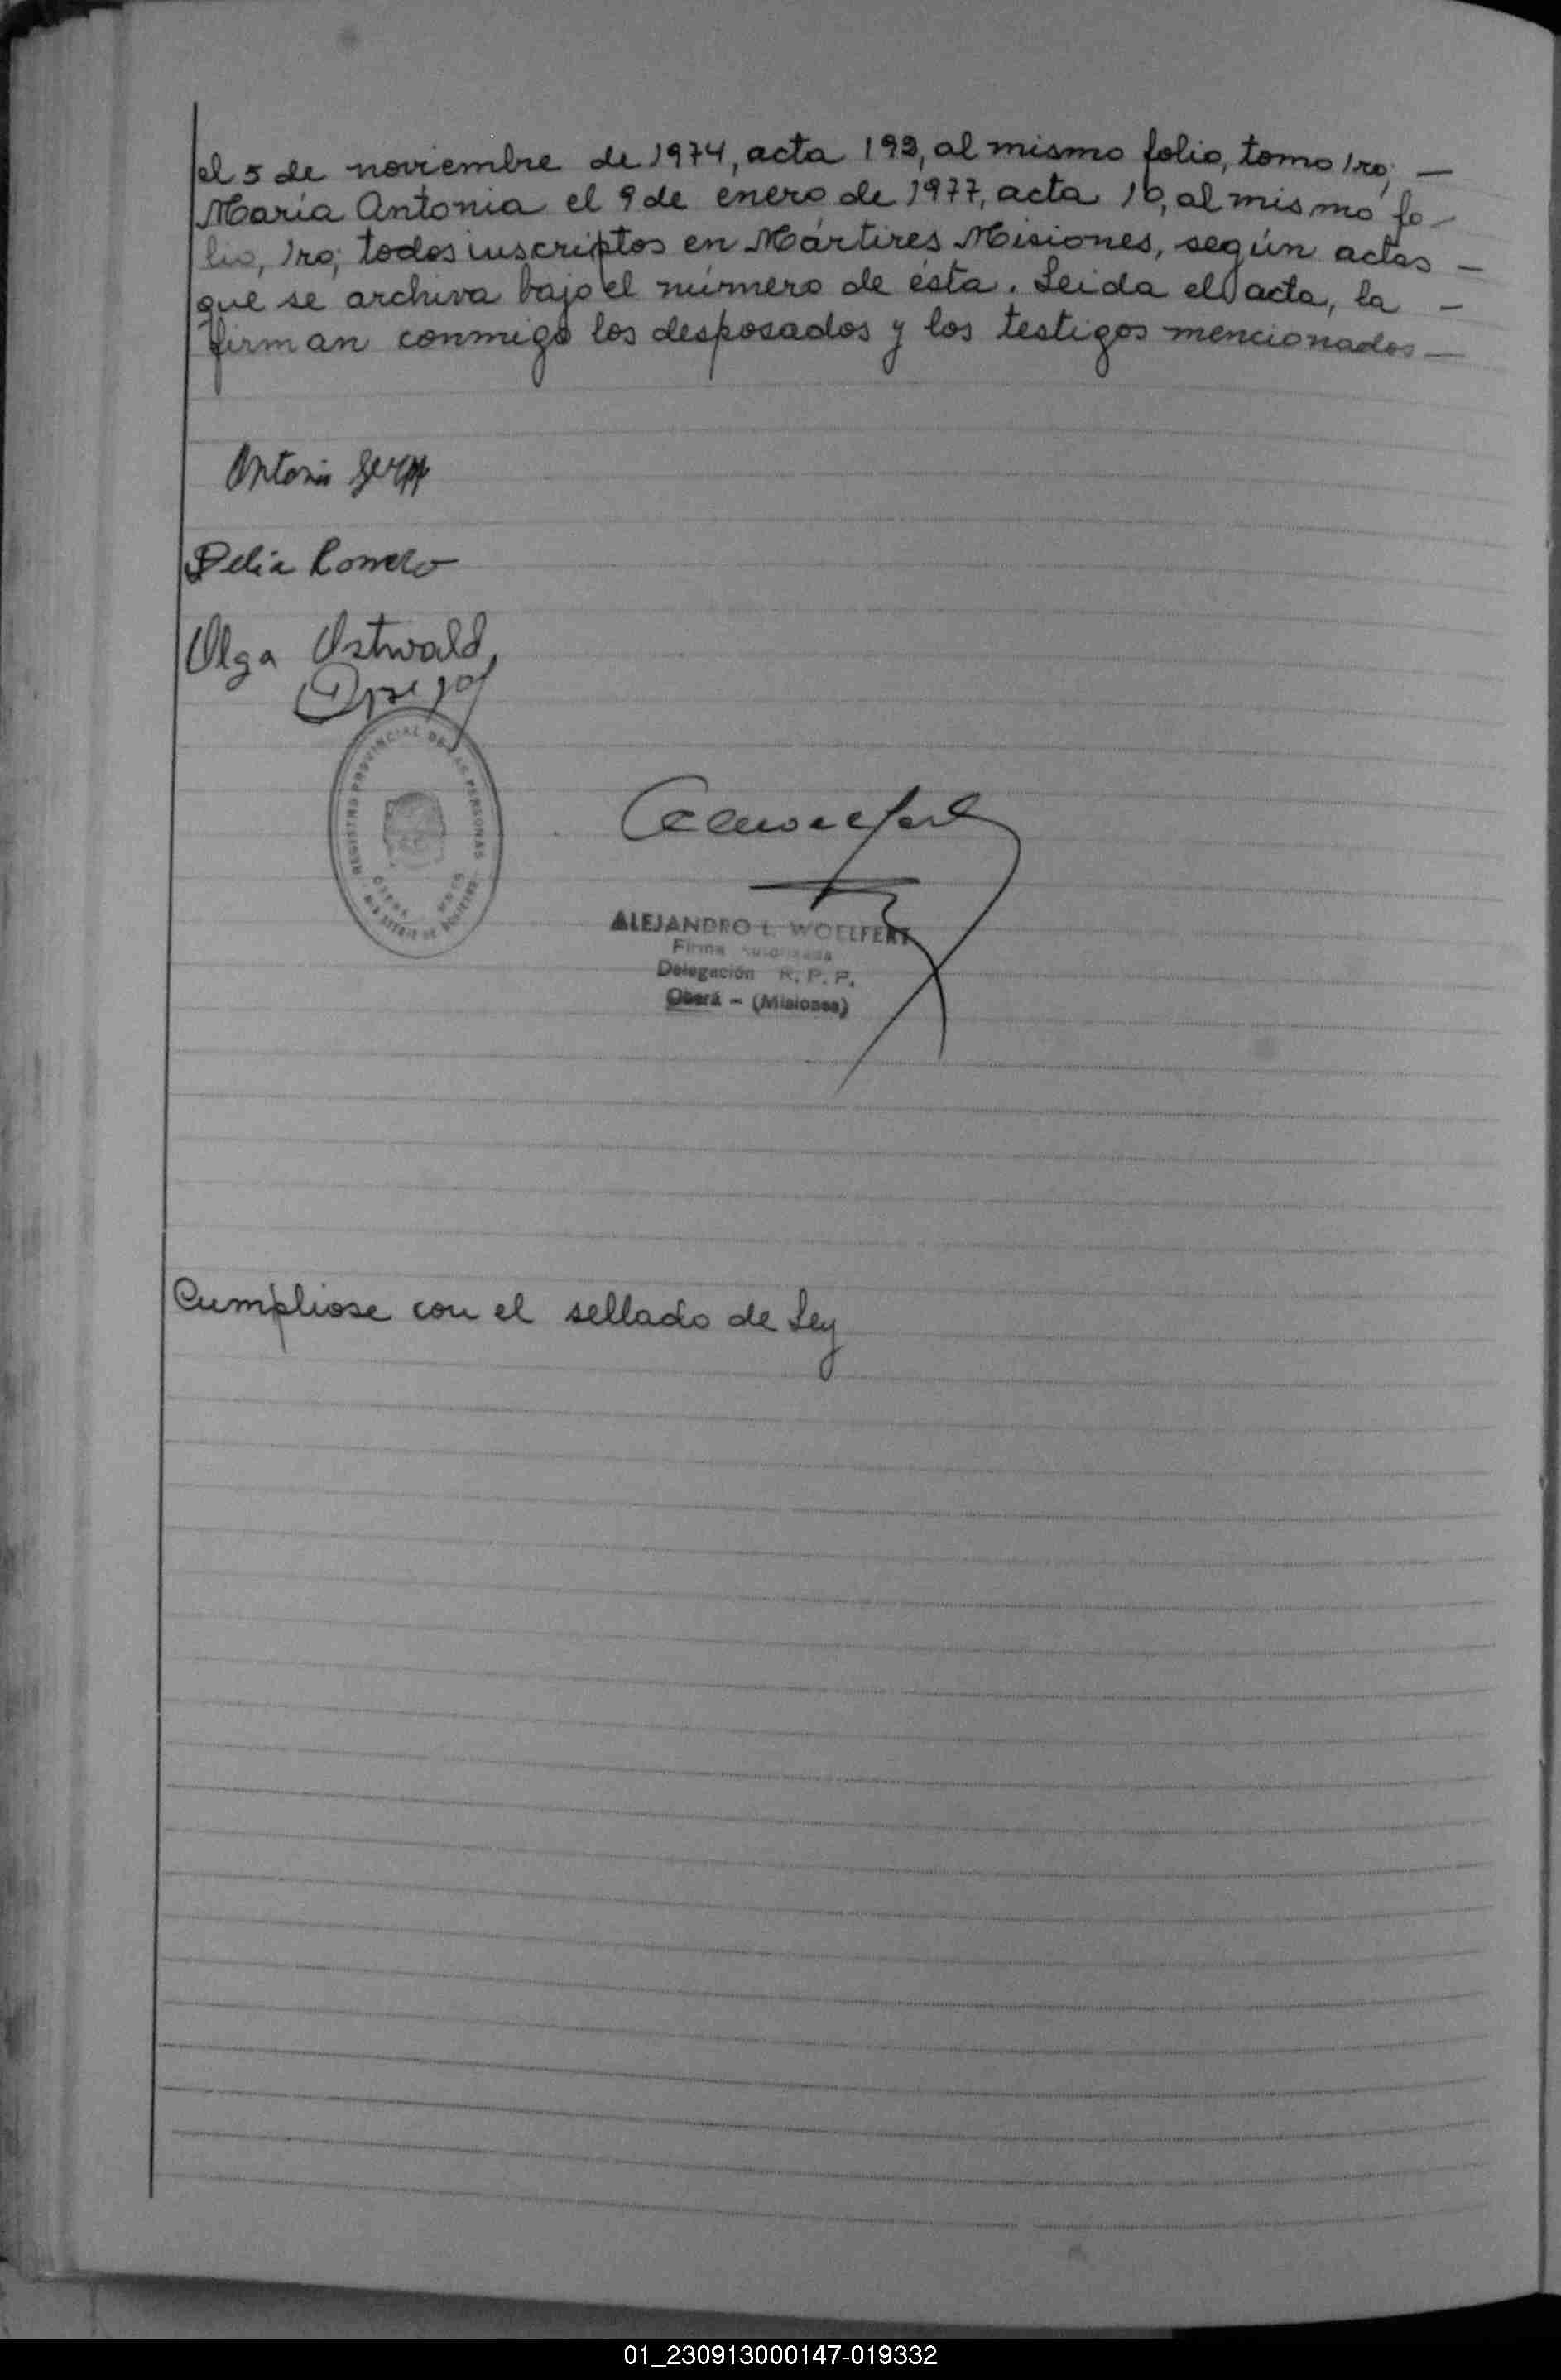 el 5 de noviembre de 1974, acta 193, al mismo folio, tomo 1ro; —
María Antonia el 9 de enero de 1977, acta 10, al mismo fo-
lio, 1ro; todos inscriptos en Mártires Misiones, según actas —
que se archiva bajo el número de ésta. Leida el acta, la —
firman conmigo los desposados y los testigos mencionados —
Antonio
Delia Romero
Olga Ostwald
REGISTRO PROVINCIAL DE LAS PERSONAS
ALEJANDRO L. WOELFERT
Firma Autorizada
Delegación R. P. P.
Oberá - (Misiones)
Cumpliose con el sellado de Ley
01_230913000147-019332